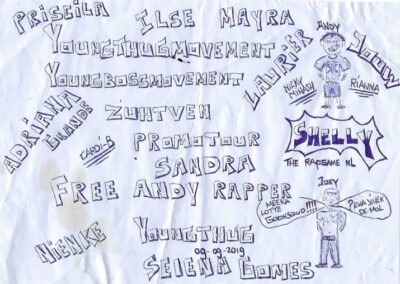 PRISCILA
ILSE MAYRA
ANDY
YOUNGTHUGMOVEMENT
LAURIER
JOUW
YOUNGBOSSMOVEMENT
NICKY
MINASH
RIANNA
ADRIANA
GRANDE
ZUHTVEN
CARDI-B
PROMOTOUR
SHELLY
THE RAPGAME NL
SANDRA
FREE ANDY RAPPER
JOEY
MEEKA
LOTTE
GODENSGUD!!!!
PEVA JINEK
DE MOL
NIENKE
YOUNGTHUG
09-09-2019
SELENA GOMES